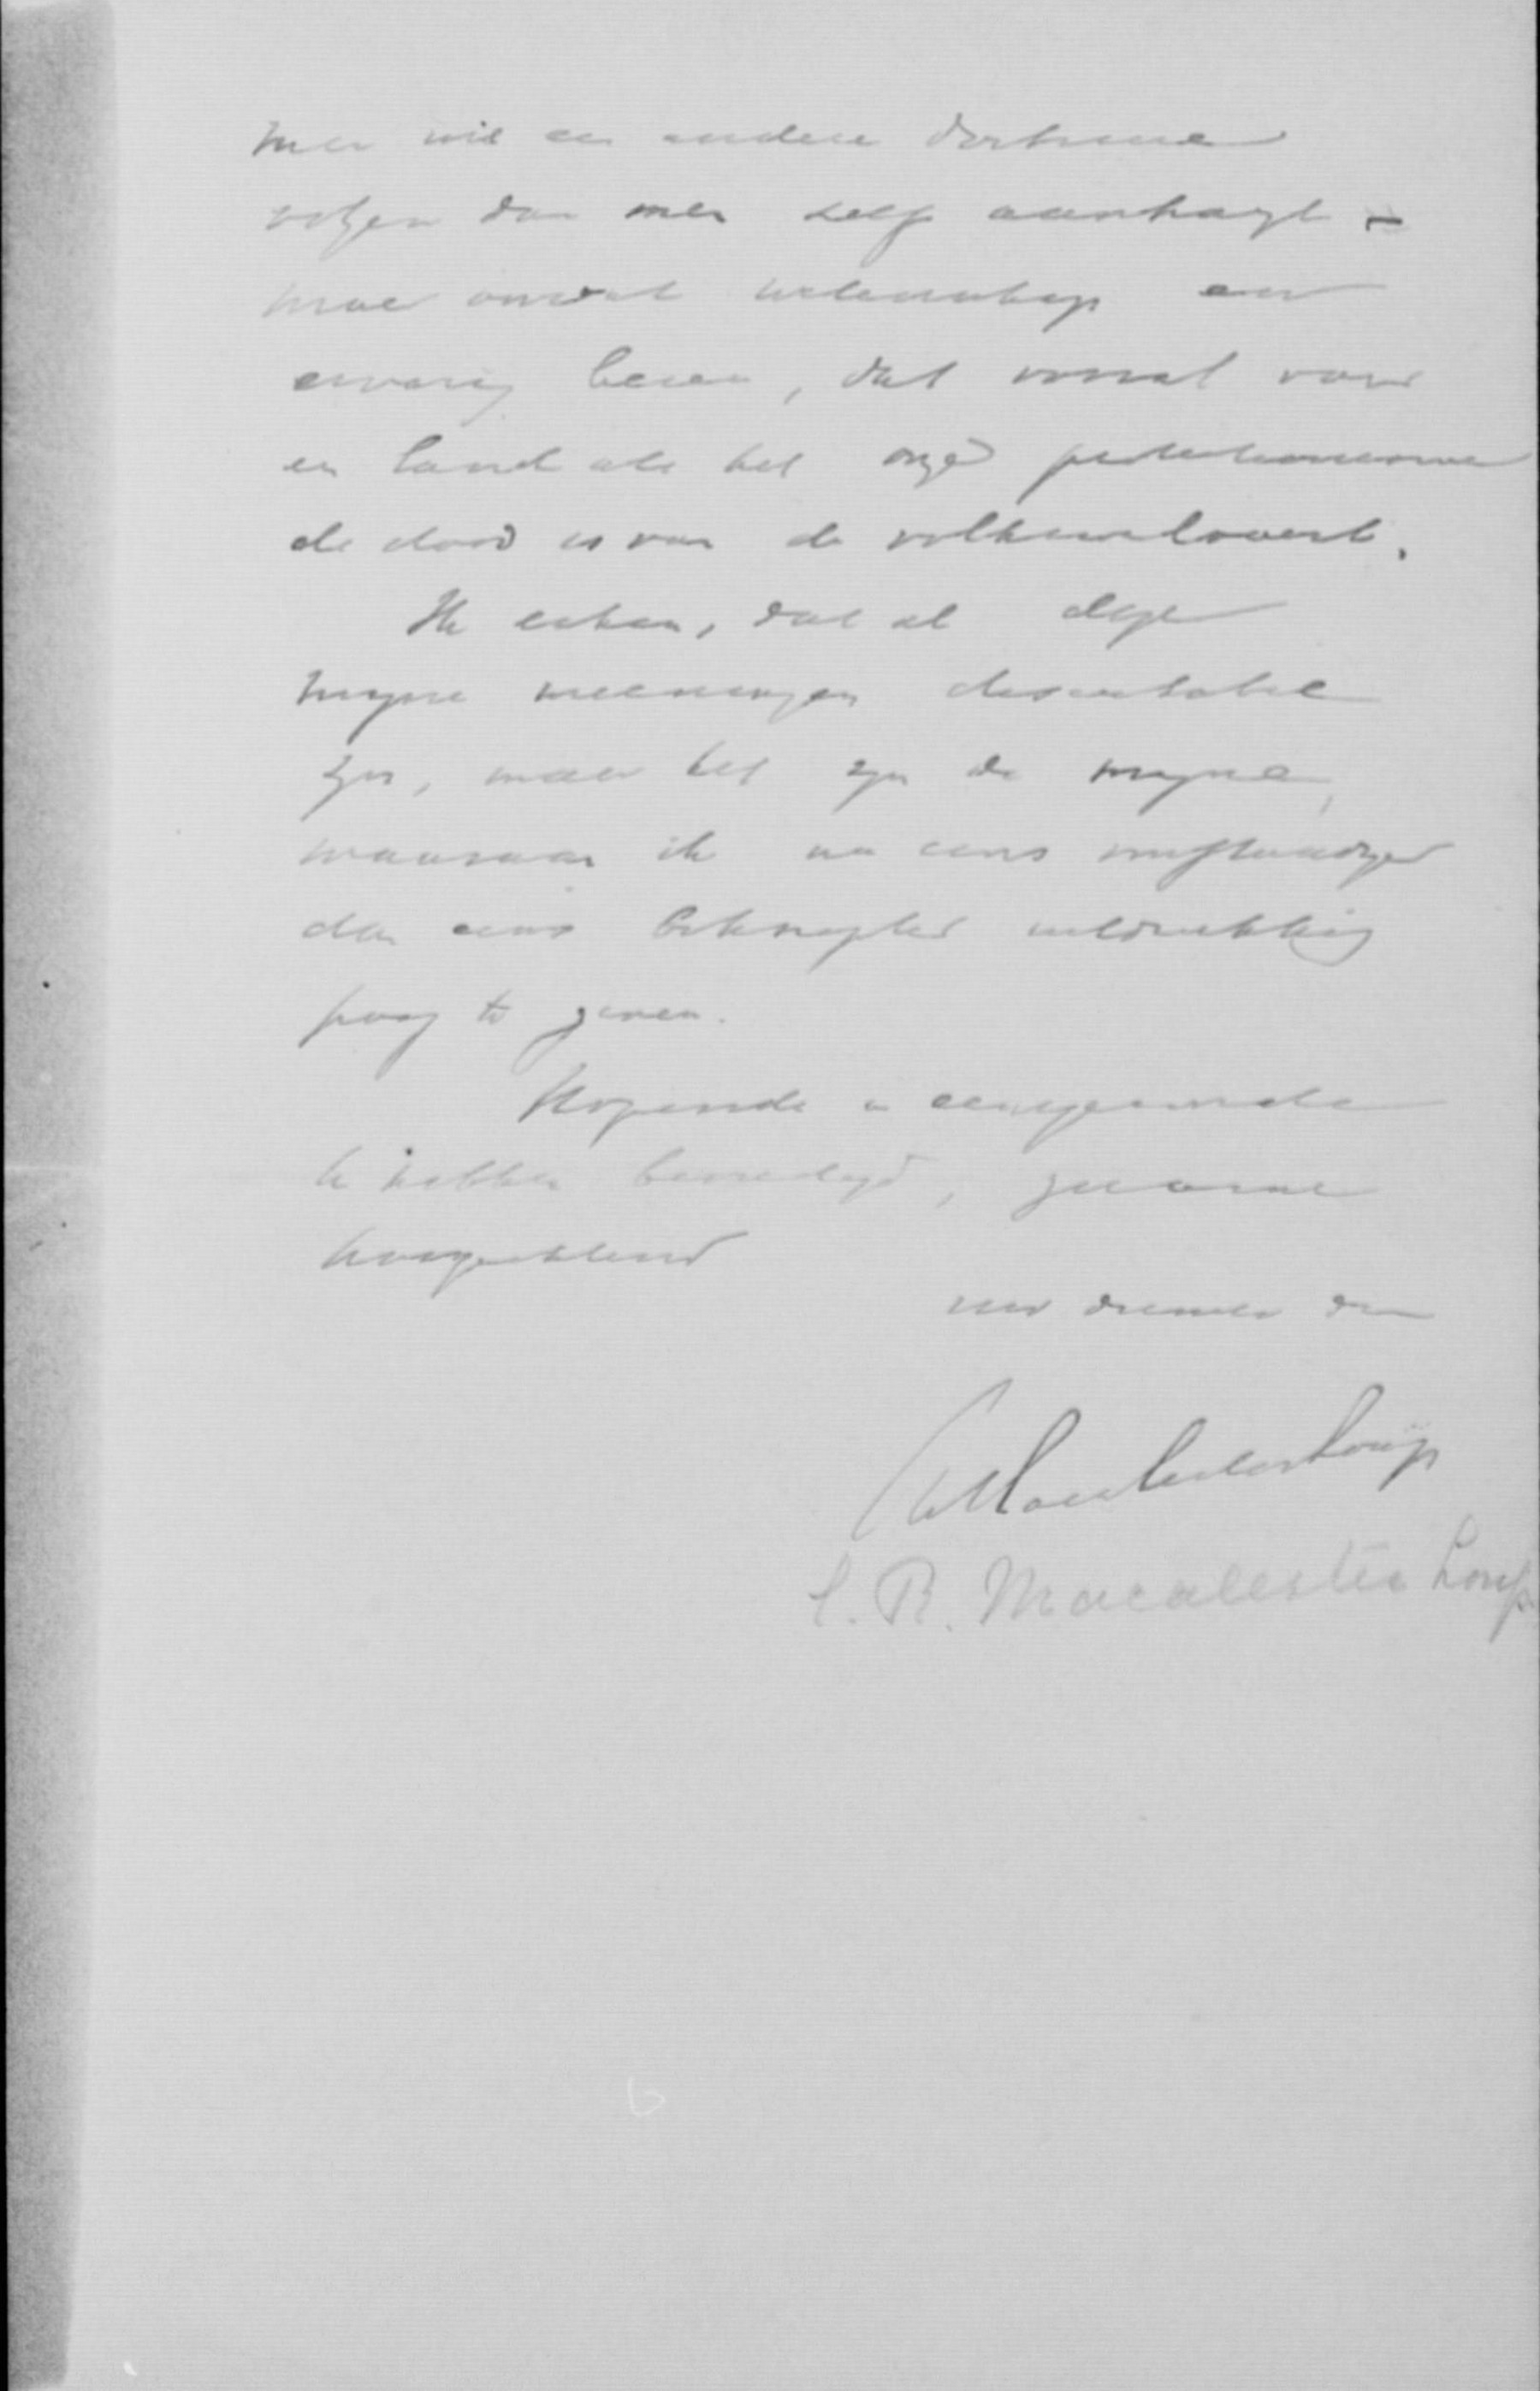 men wil een andere doctrine
volgen dan men zelf aanhangt –
maar omdat wetenschap en
ervaring leeren, dat vooral voor
een land als het onze protectionisme
de dood is van de volkswelvaart.
Ik erken, dat al deze
mijne meeningen discutabel
zijn, maar het zijn de mijne,
waaraan ik nu eens omstandiger
dan eens beknopter uitdrukking
poog te geven.
Hopende u eenigermate
te hebben bevredigd,
hoogachtend
uw dienaar
C. R. Macalester Loup